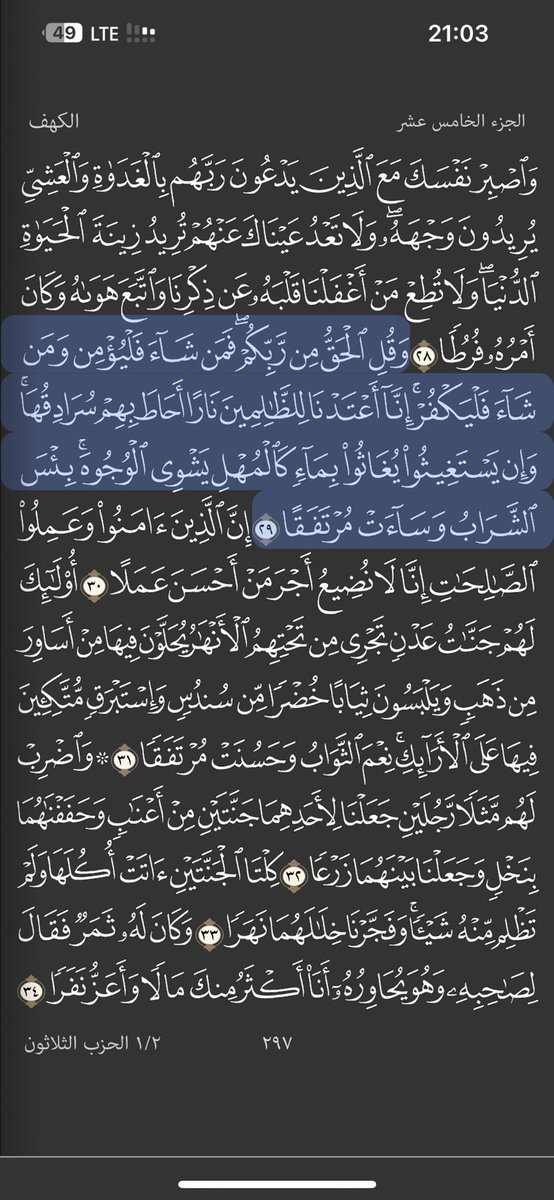 49 LTE 21:03
الجزء الخامس عشر الكهف
وَٱصۡبِرۡ نَفۡسَكَ مَعَ ٱلَّذِينَ يَدۡعُونَ رَبَّهُم بِٱلۡغَدَوٰةِ وَٱلۡعَشِيِّ
يُرِيدُونَ وَجۡهَهُۥۖ وَلَا تَعۡدُ عَيۡنَاكَ عَنۡهُمۡ تُرِيدُ زِينَةَ ٱلۡحَيَوٰةِ
ٱلدُّنۡيَاۖ وَلَا تُطِعۡ مَنۡ أَغۡفَلۡنَا قَلۡبَهُۥ عَن ذِكۡرِنَا وَٱتَّبَعَ هَوَىٰهُ وَكَانَ
أَمۡرُهُۥ فُرُطٗا ٢٨ وَقُلِ ٱلۡحَقُّ مِن رَّبِّكُمۡۖ فَمَن شَآءَ فَلۡيُؤۡمِن وَمَن
شَآءَ فَلۡيَكۡفُرۡۚ إِنَّآ أَعۡتَدۡنَا لِلظَّٰلِمِينَ نَارًا أَحَاطَ بِهِمۡ سُرَادِقُهَاۚ
وَإِن يَسۡتَغِيثُواْ يُغَاثُواْ بِمَآءٖ كَٱلۡمُهۡلِ يَشۡوِي ٱلۡوُجُوهَۚ بِئۡسَ
ٱلشَّرَابُ وَسَآءَتۡ مُرۡتَفَقًا ٢٩ إِنَّ ٱلَّذِينَ ءَامَنُواْ وَعَمِلُواْ
ٱلصَّٰلِحَٰتِ إِنَّا لَا نُضِيعُ أَجۡرَ مَنۡ أَحۡسَنَ عَمَلًا ٣٠ أُوْلَٰٓئِكَ
لَهُمۡ جَنَّٰتُ عَدۡنٖ تَجۡرِي مِن تَحۡتِهِمُ ٱلۡأَنۡهَٰرُ يُحَلَّوۡنَ فِيهَا مِنۡ أَسَاوِرَ
مِن ذَهَبٖ وَيَلۡبَسُونَ ثِيَابًا خُضۡرٗا مِّن سُندُسٖ وَإِسۡتَبۡرَقٖ مُّتَّكِـِٔينَ
فِيهَا عَلَى ٱلۡأَرَآئِكِۚ نِعۡمَ ٱلثَّوَابُ وَحَسُنَتۡ مُرۡتَفَقٗا ٣١ ۞ وَٱضۡرِبۡ
لَهُم مَّثَلٗا رَّجُلَيۡنِ جَعَلۡنَا لِأَحَدِهِمَا جَنَّتَيۡنِ مِنۡ أَعۡنَٰبٖ وَحَفَفۡنَٰهُمَا
بِنَخۡلٖ وَجَعَلۡنَا بَيۡنَهُمَا زَرۡعٗا ٣٢ كِلۡتَا ٱلۡجَنَّتَيۡنِ ءَاتَتۡ أُكُلَهَا وَلَمۡ
تَظۡلِم مِّنۡهُ شَيۡـٔٗاۚ وَفَجَّرۡنَا خِلَٰلَهُمَا نَهَرٗا ٣٣ وَكَانَ لَهُۥ ثَمَرٞ فَقَالَ
لِصَٰحِبِهِۦ وَهُوَ يُحَاوِرُهُۥٓ أَنَا۠ أَكۡثَرُ مِنكَ مَالٗا وَأَعَزُّ نَفَرٗا ٣٤
٢٩٧ ١/٢ الحزب الثلاثون